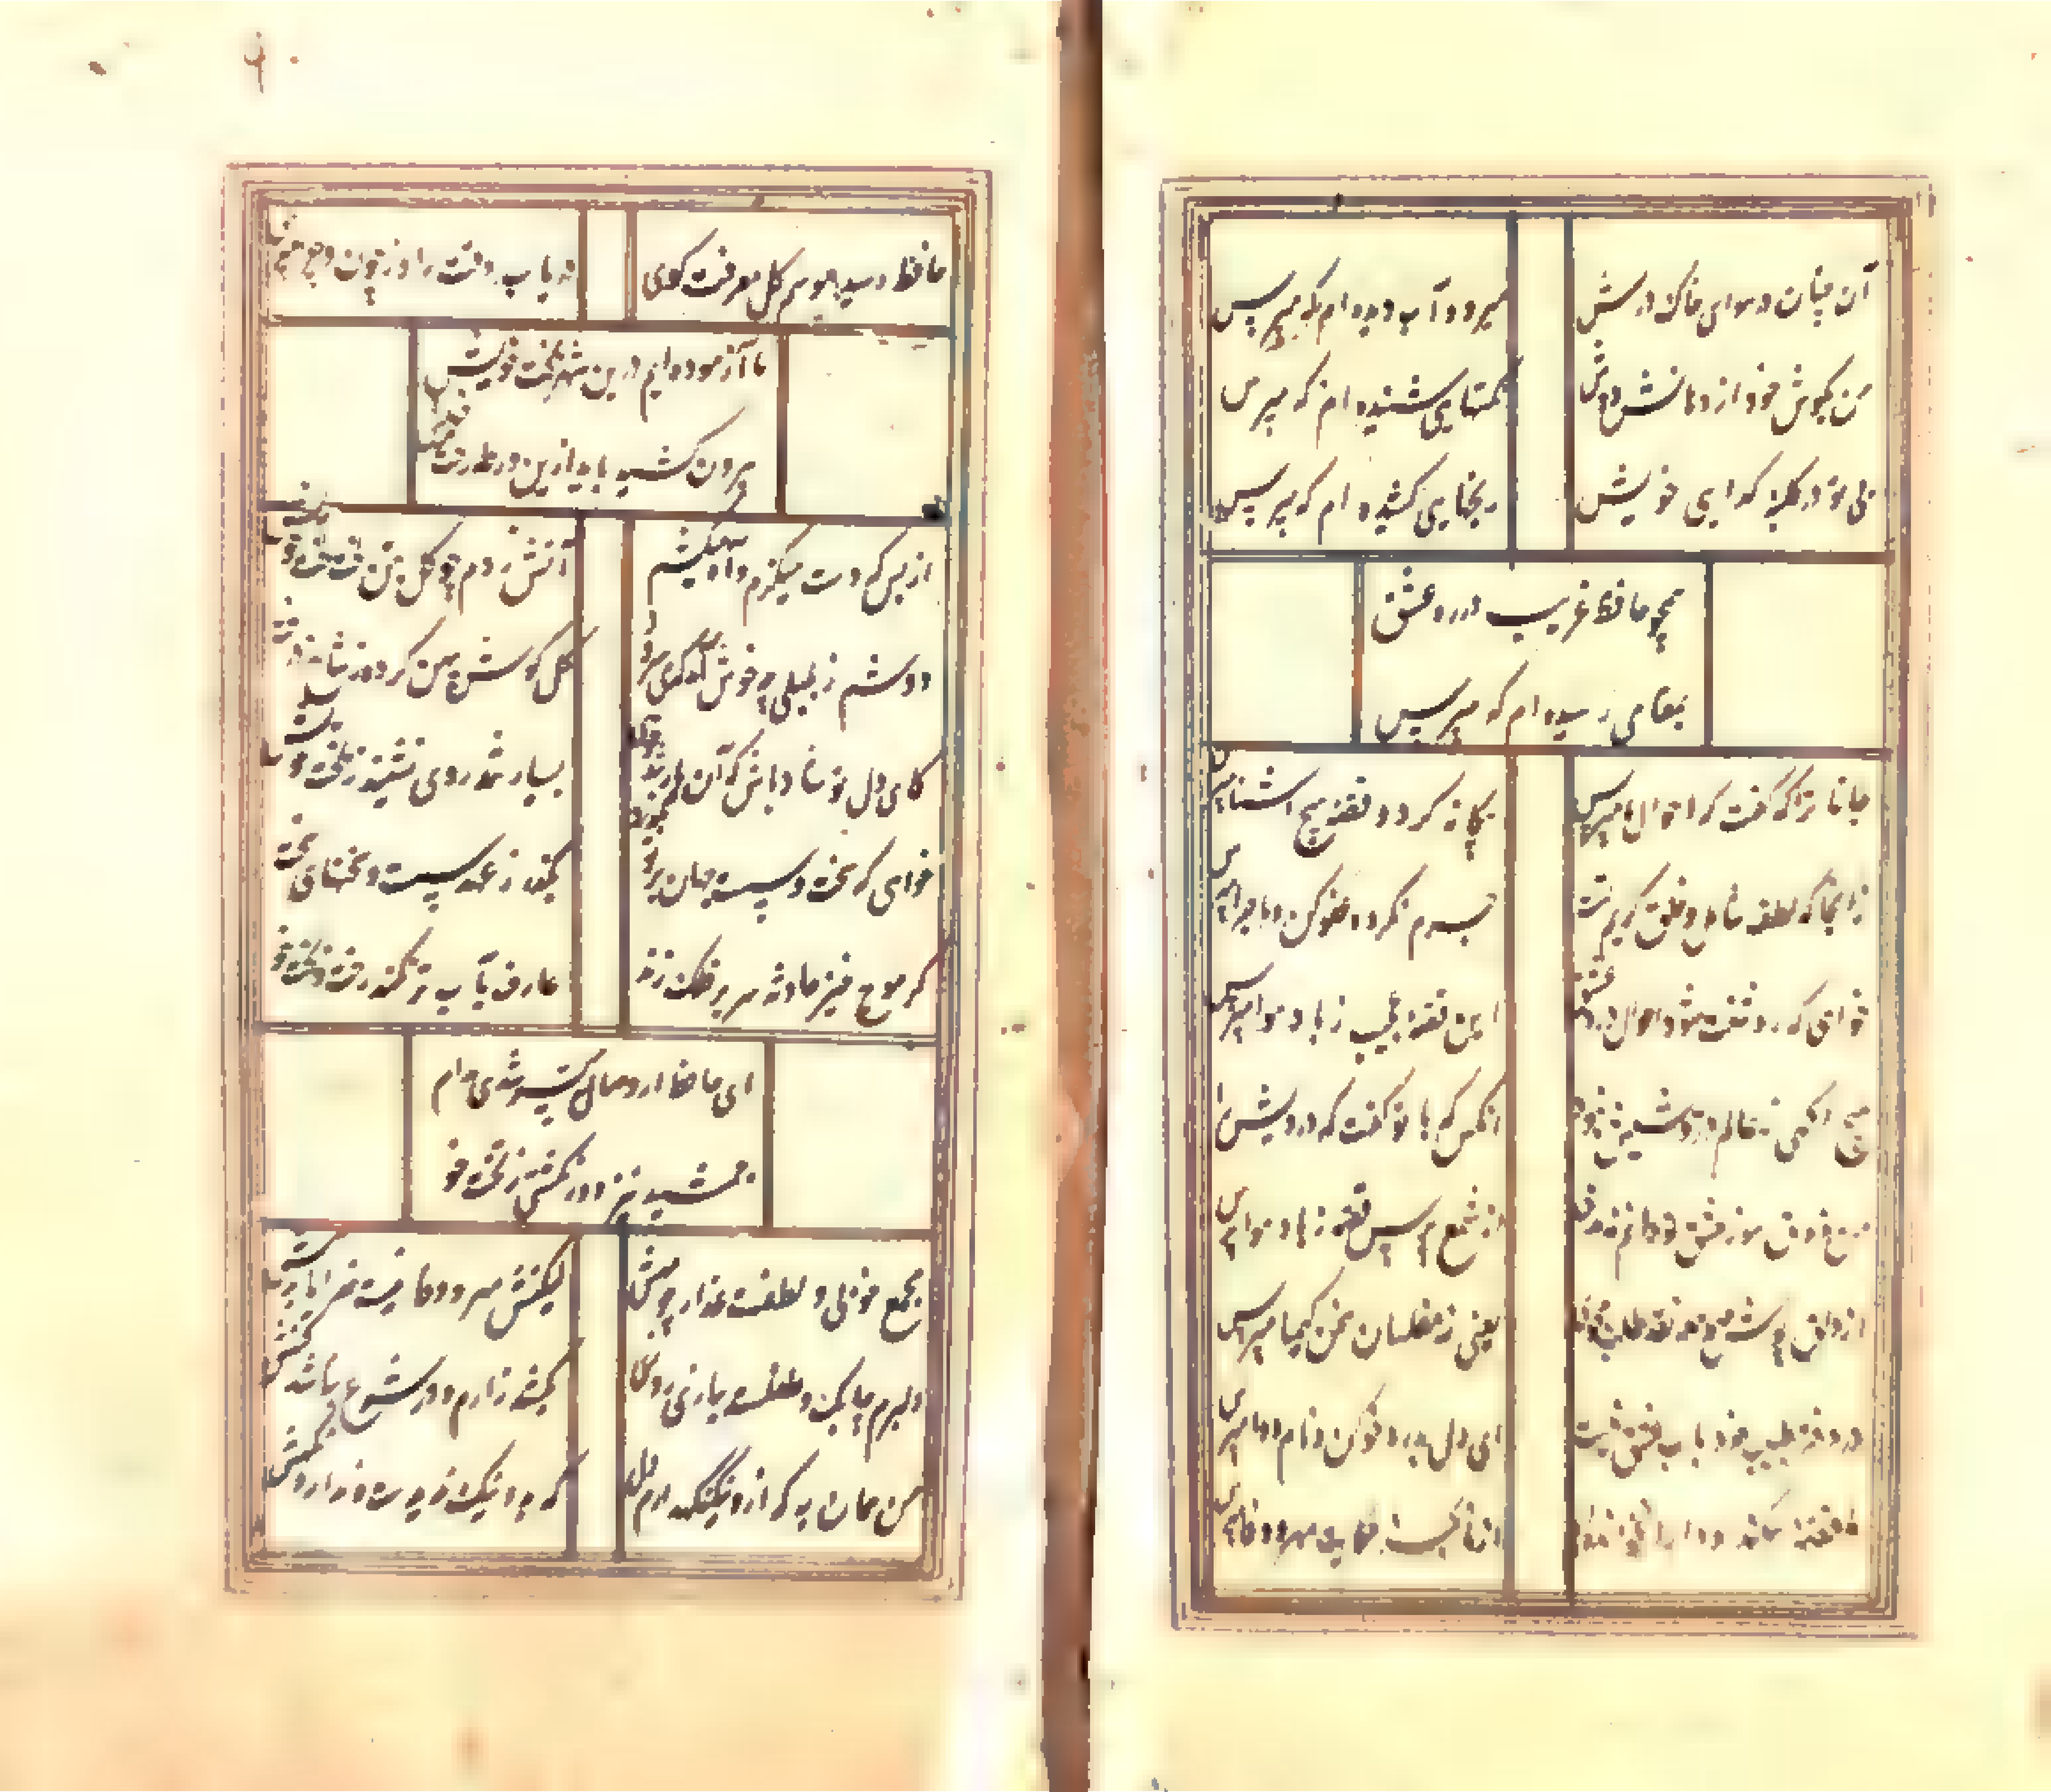 آن چنان در هوای خاک درش
میرود آب دیده ام که مپرس
من بگوش خود از دهانش دوش
سخنانی شنیده ام که مپرس
بی تو در کلبه گدایی خویش
رنجهایی کشیده ام که مپرس
همچو حافظ غریب در ره عشق
بمقامی رسیده ام که مپرس
جانا ترا که گفت که احوال ما مپرس
بیگانه گرد و قصه هیچ آشنا مپرس
زانجا که لطف شامل و خلق کریم تست
جرم نکرده عفو کن و ماجرا مپرس
خواهی که روشنت شود احوال درد عشق
از شمع پرس قصه ز باد هوا مپرس
هیچ آگهی ز عالم درویشیش نبود
آنکس که با تو گفت که درویش را
من ذوق سوز عشق تو دانم نه مدعی
از شمع پرس قصه ز باد هوا مپرس
از دلق پوش صومعه نقد طلب مخواه
یعنی ز مفلسان سخن کیمیا مپرس
در دفتر طبیب خرد باب عشق نیست
ای دل بدرد خو کن و نام دوا مپرس
ما قصه سکندر و دارا نخوانده ایم
از ما بجز حکایت مهر و وفا مپرس
حافظ رسید موسم گل معرفت مگوی
دریاب وقت را و ز چون و چرا مپرس
ما آزموده ایم درین شهر بخت خویش
بیرون کشید باید ازین ورطه رخت خویش
از بس که دست میگزم و آه میکشم
آتش زدم چو گل به تن لخت لخت خویش
دوشم ز بلبلی چه خوش آمد که می سرود
گل گوش پهن کرده ز شاخ درخت
کای دل تو شاد باش که آن یار تندخو
بسیار تند روی نشیند ز بخت خویش
خواهی که سخت و سست جهان بر تو
بگذر ز عهد سست و سخنهای سخت
گر موج خیز حادثه سر بر فلک زند
عارف بآب تر نکند رخت و بخت خو
ای حافظ ار وصال میسر شدی مدام
جمشید نیز دور نگشتی ز تخت خو
مجمع خوبی و لطفست عذار چو مهش
لیکنش مهر و وفا نیست خدایا بدهش
دلبرم چابک و طفلست و ببازی روزی
بکشد زارم و در شرع نباشد گنهش
من همان به که ازو نیک نگه دارم دل
که بد و نیک ندیدست و ندارد نگهش